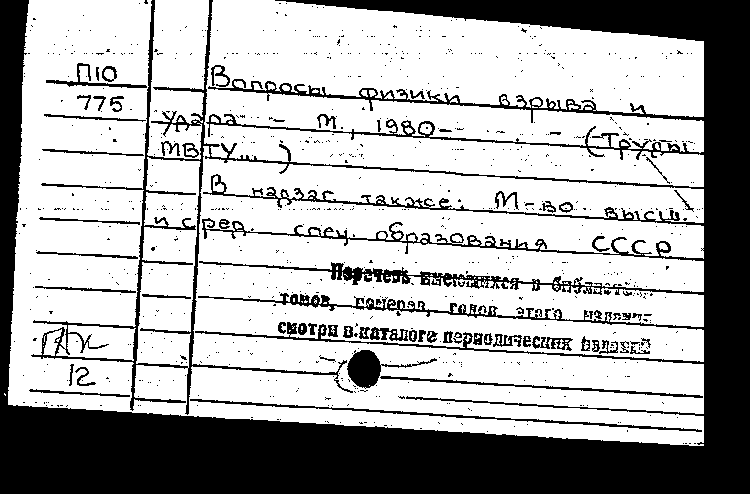 П10
775
Вопросы физики взрыва и
удара. - М., 1980- - (Труды
МВТУ... )
В надзаг также: М-во высш.
и сред. спец. образования СССР
Перечень имеющихся в библиотеке
томов, номеров, годов этого издания
смотри в каталоге периодических изданий
12